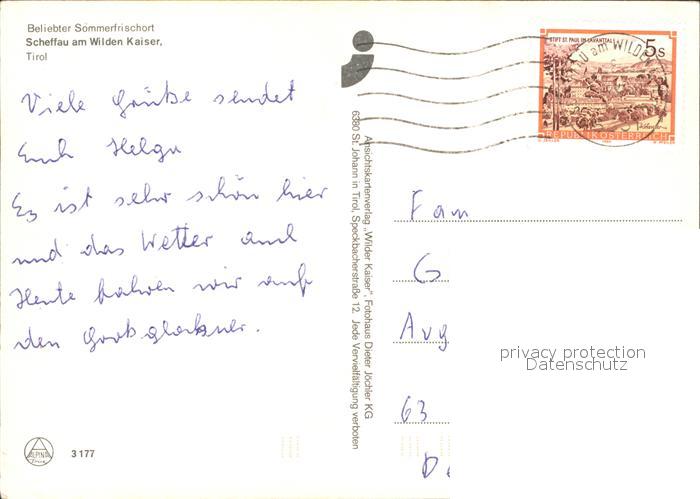 Beliebter Sommerfrischort
Scheffau am Wilden Kaiser,
Tirol
Viele Grüße sendet
Euch Helga
Es ist sehr schön hier
und das Wetter auch
Heute fahren wir auf
den Großglockner.
ALPINA
3 177
Ansichtskartenverlag „Wilder Kaiser", Fotohaus Dieter Jöchler KG
6380 St. Johann in Tirol, Speckbacherstraße 12. Jede Vervielfältigung verboten
STIFT ST. PAUL IM LAVANTTAL
5 S
REPUBLIK ÖSTERREICH
AU am WILDEN
Fam
G
Aug
63
D
privacy protection
Datenschutz